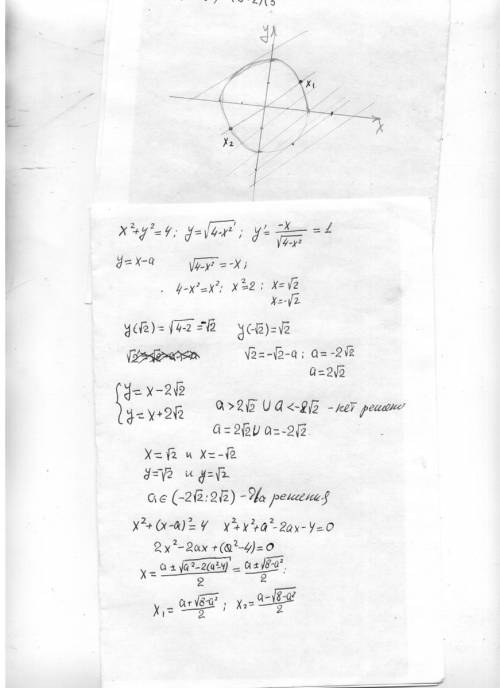 y
x₁
x₂
x
x²+y²=4; y=√(4-x²); y'= -x/√(4-x²) =1
y=x-a √(4-x²)=-x;
4-x²=x²; x²=2; x=√2
x=-√2
y(√2)=√(4-2)=-√2 y(-√2)=√2
√2=-√2-a; a=-2√2
a=2√2
{y=x-2√2
{y=x+2√2
a>2√2 ∪ a<-2√2 - нет решени
a=2√2 ∪ a=-2√2.
x=√2 и x=-√2
y=-√2 и y=√2
a∈(-2√2; 2√2) - два решения
x²+(x-a)²=4 x²+x²+a²-2ax-4=0
2x²-2ax+(a²-4)=0
x= (a±√(a²-2(a²-4)))/2 = (a±√(8-a²))/2;
x₁= (a+√(8-a²))/2; x₂= (a-√(8-a²))/2